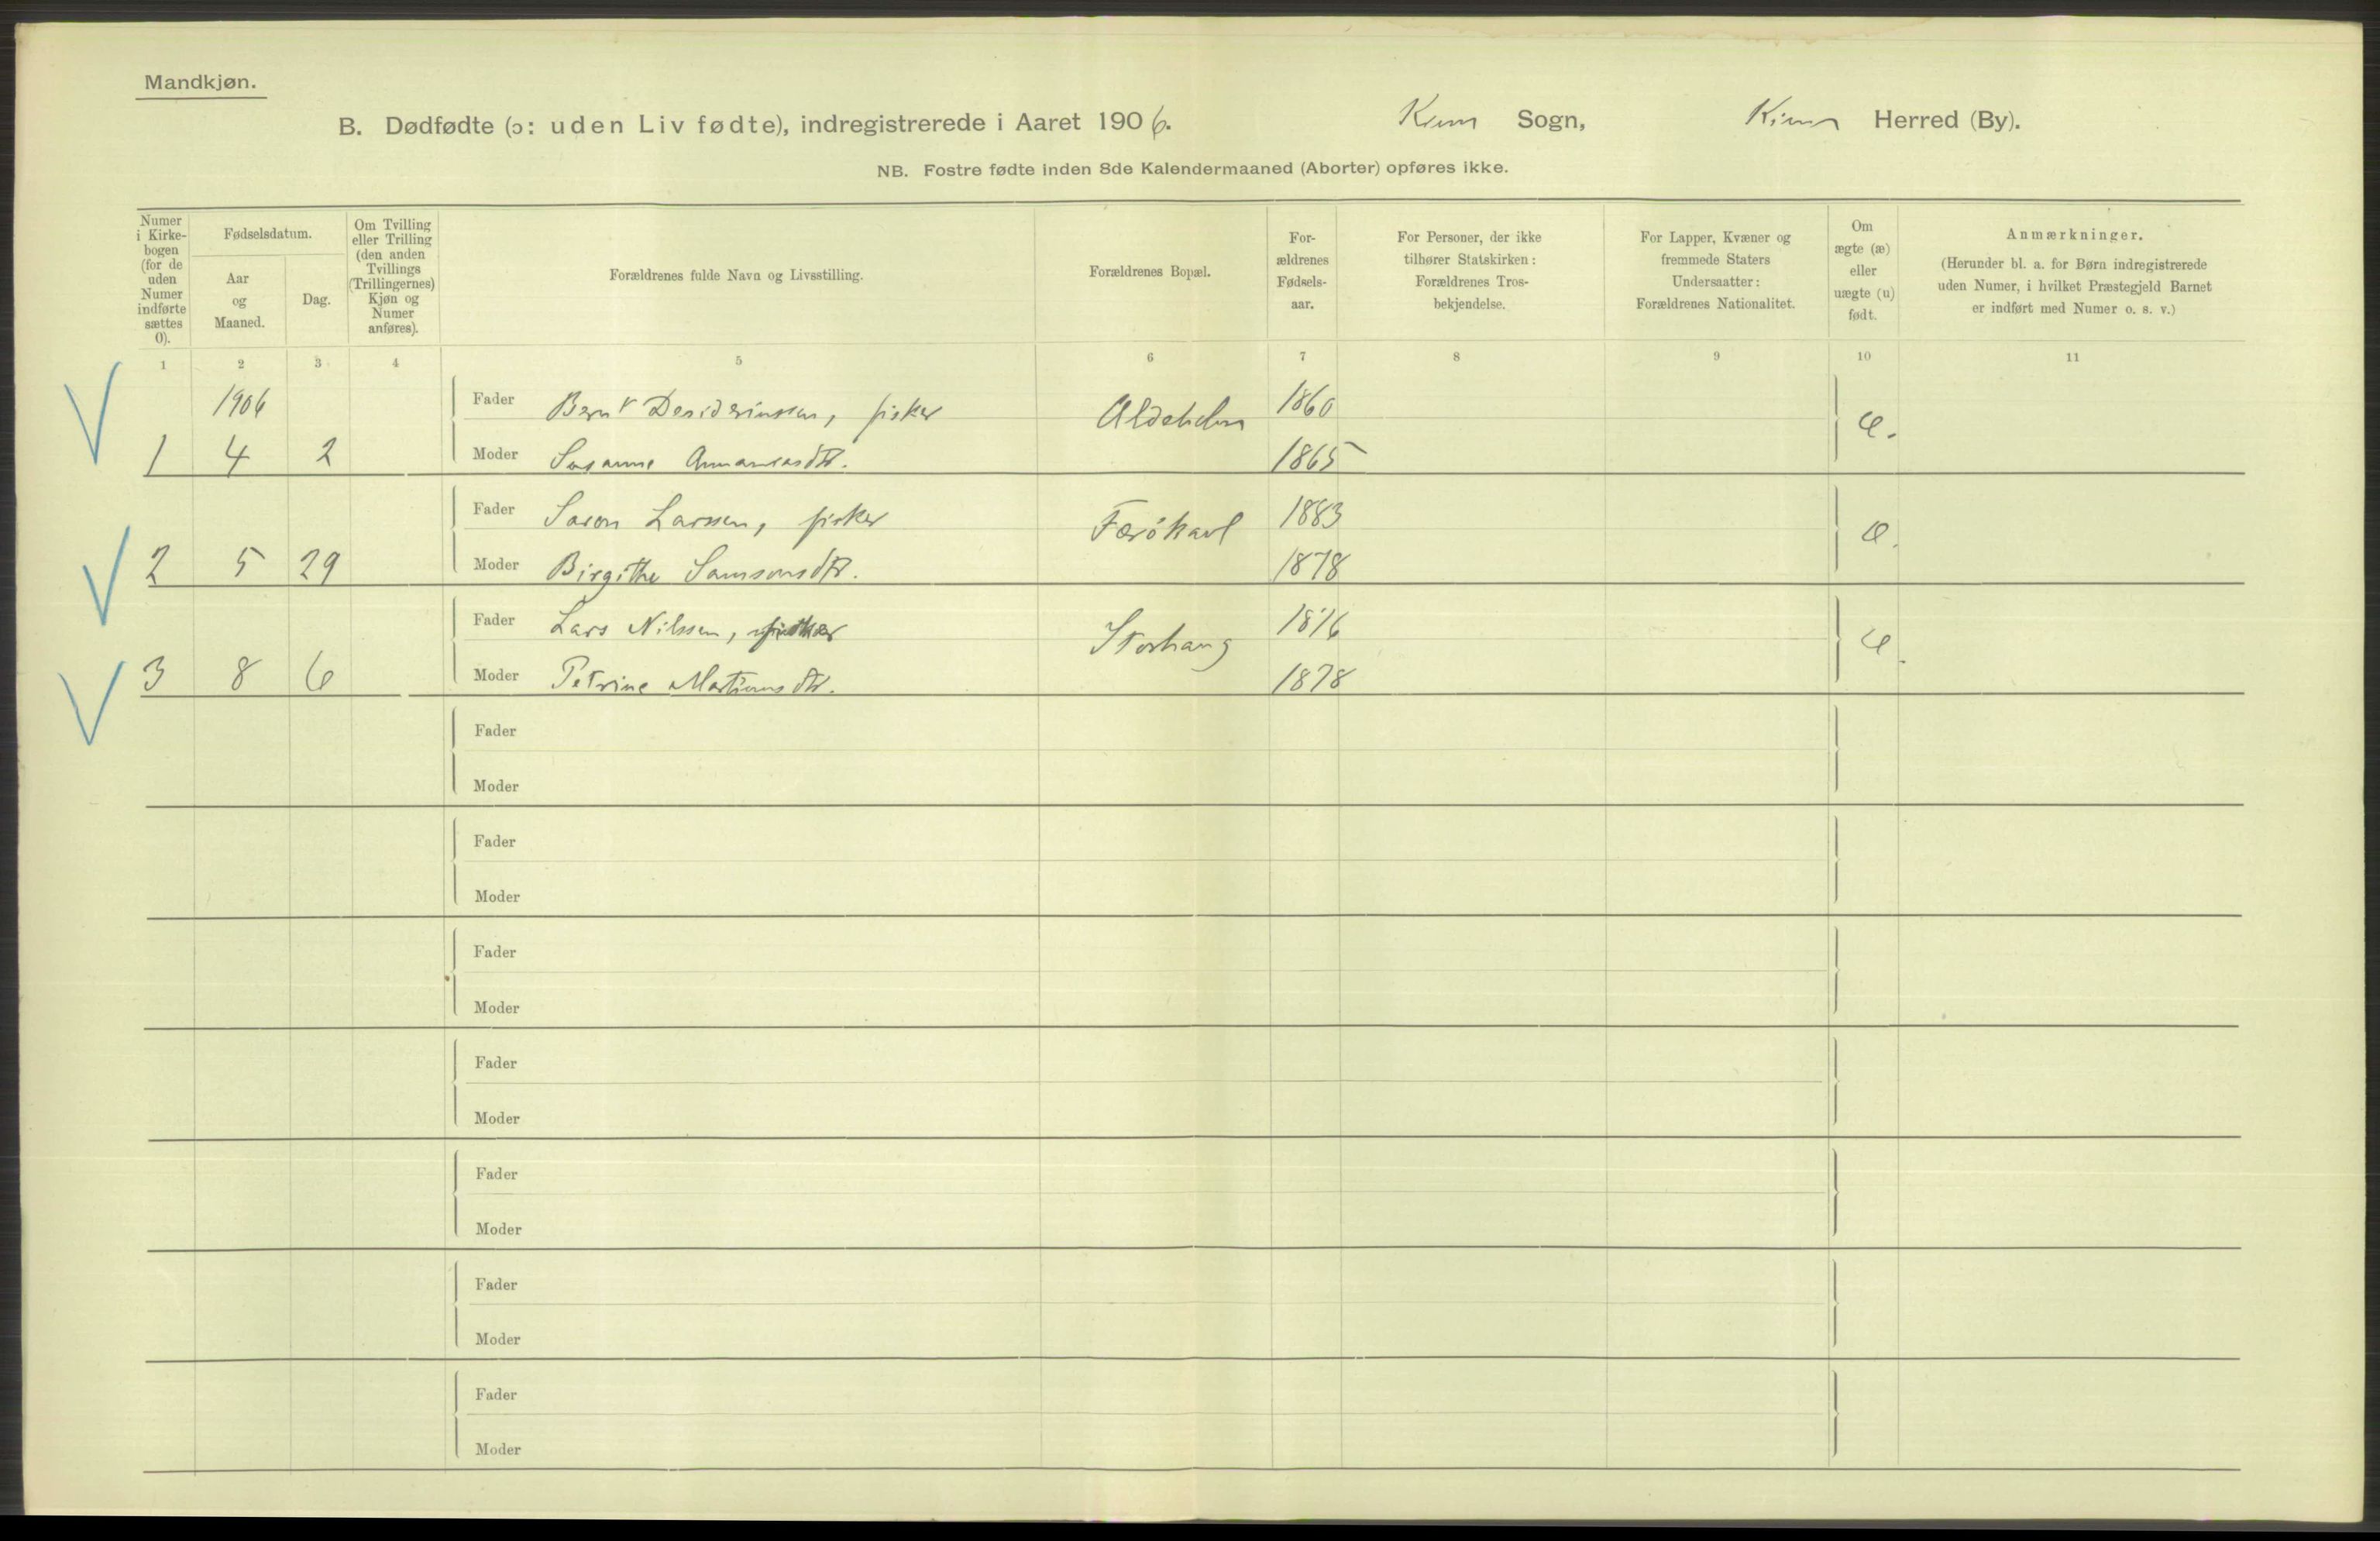 Mandkjøn.
B. Dødfødte (ɔ: uden Liv fødte), indregistrerede i Aaret 1906. Kinn Sogn, Kinn Herred (By).
NB. Fostre fødte inden 8de Kalendermaaned (Aborter) opføres ikke.
Numer i Kirke-bogen (for de uden Numer indførte sættes 0).
Fødselsdatum.
Aar og Maaned.
Dag.
Om Tvilling eller Trilling (den anden Tvillings (Trillingernes) Kjøn og Numer anføres).
Forældrenes fulde Navn og Livsstilling.
Forældrenes Bopæl.
For-ældrenes Fødsels-aar.
For Personer, der ikke tilhører Statskirken: Forældrenes Tros-bekjendelse.
For Lapper, Kvæner og fremmede Staters Undersaatter: Forældrenes Nationalitet.
Om ægte (æ) eller uægte (u) født.
Anmærkninger.
(Herunder bl. a. for Børn indregistrerede uden Numer, i hvilket Præstegjeld Barnet er indført med Numer o. s. v.)
1 2 3 4 5 6 7 8 9 10 11
1906 Fader Bernt Desideriussen, fisker Aldeholm 1860 æ.
1 4 2 Moder Susanne Annaniasdtr. 1865
Fader Saron Larssen, fisker Færöhavl 1883 æ.
2 5 29 Moder Birgithe Samsonsdtr. 1878
Fader Lars Nilssen, fisker Storhaug 1876 æ.
3 8 6 Moder Petrine Martinusdtr. 1878
Fader
Moder
Fader
Moder
Fader
Moder
Fader
Moder
Fader
Moder
Fader
Moder
Fader
Moder